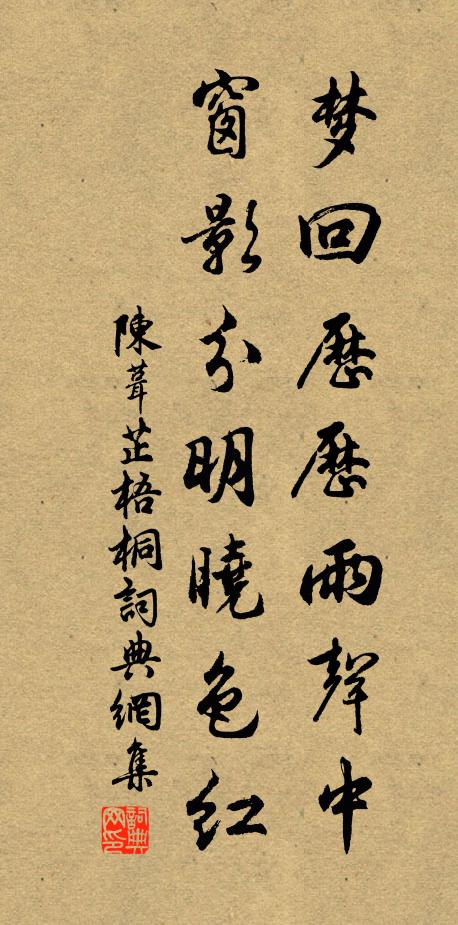 梦回歷歷雨聲中
窗影分明曉色紅
陳葺芷梧桐詞典網集
詞典網印